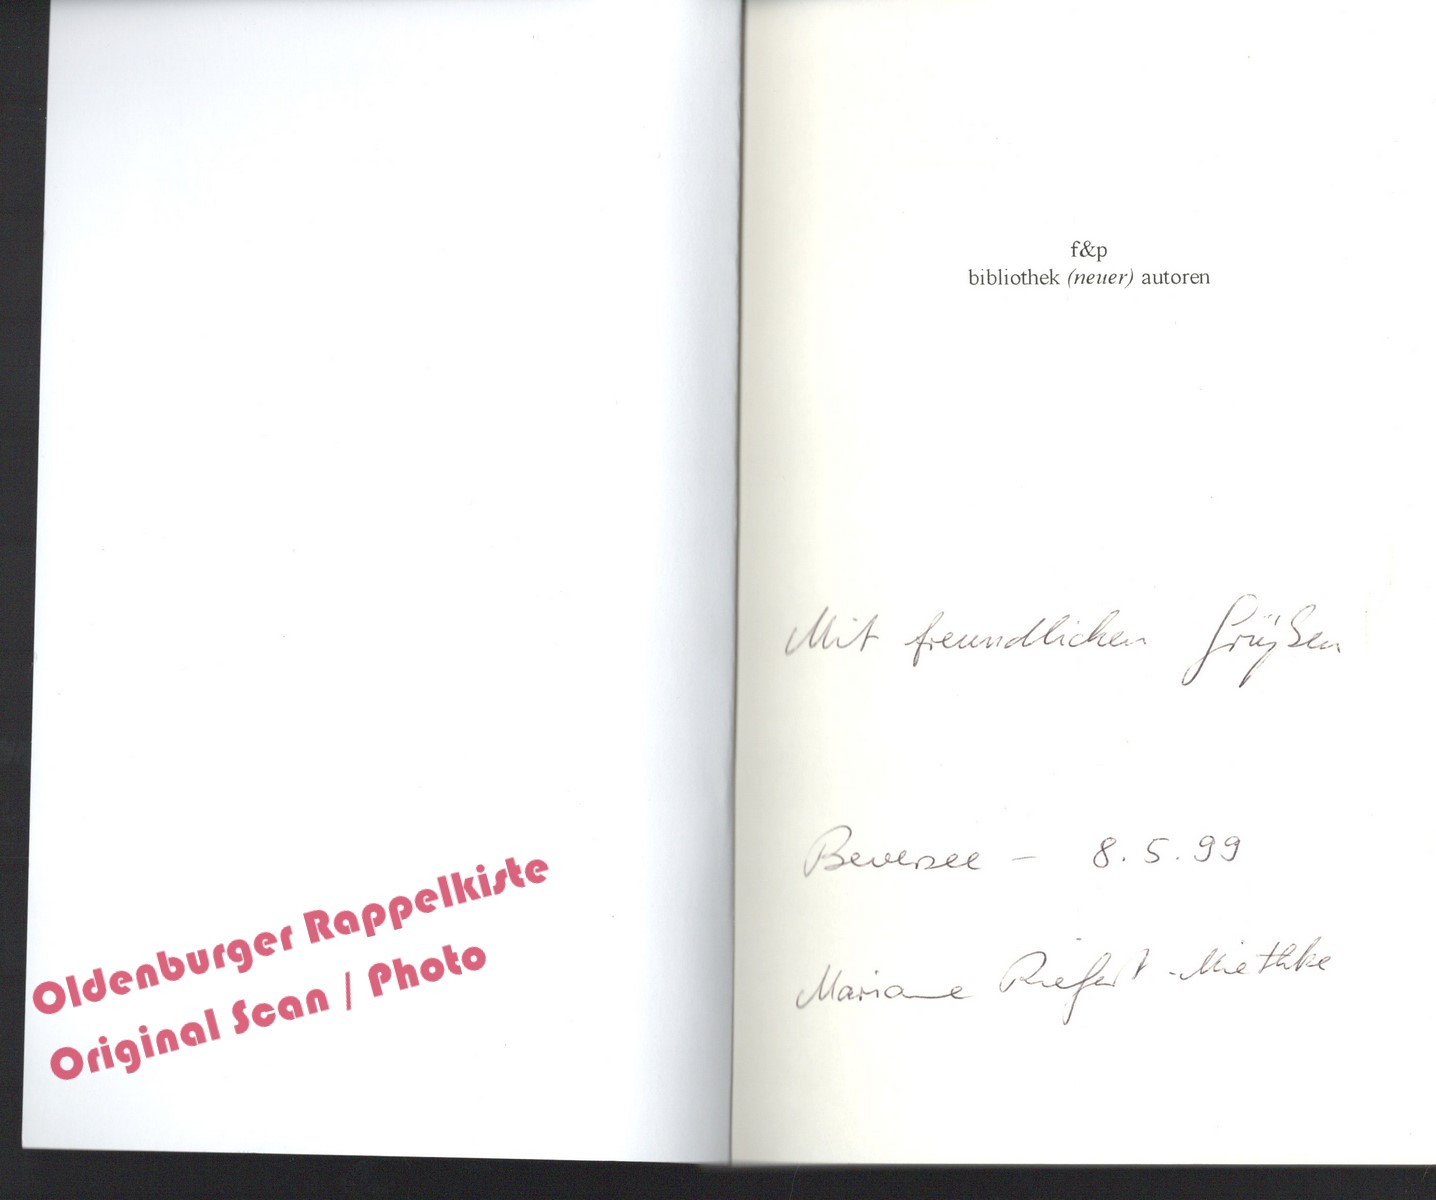 Oldenburger Rappelkiste
Original Scan / Photo
f&p
bibliothek (neuer) autoren
Mit freundlichen Grüßen
Beversee – 8.5.99
Mariane Riefert-Miethke